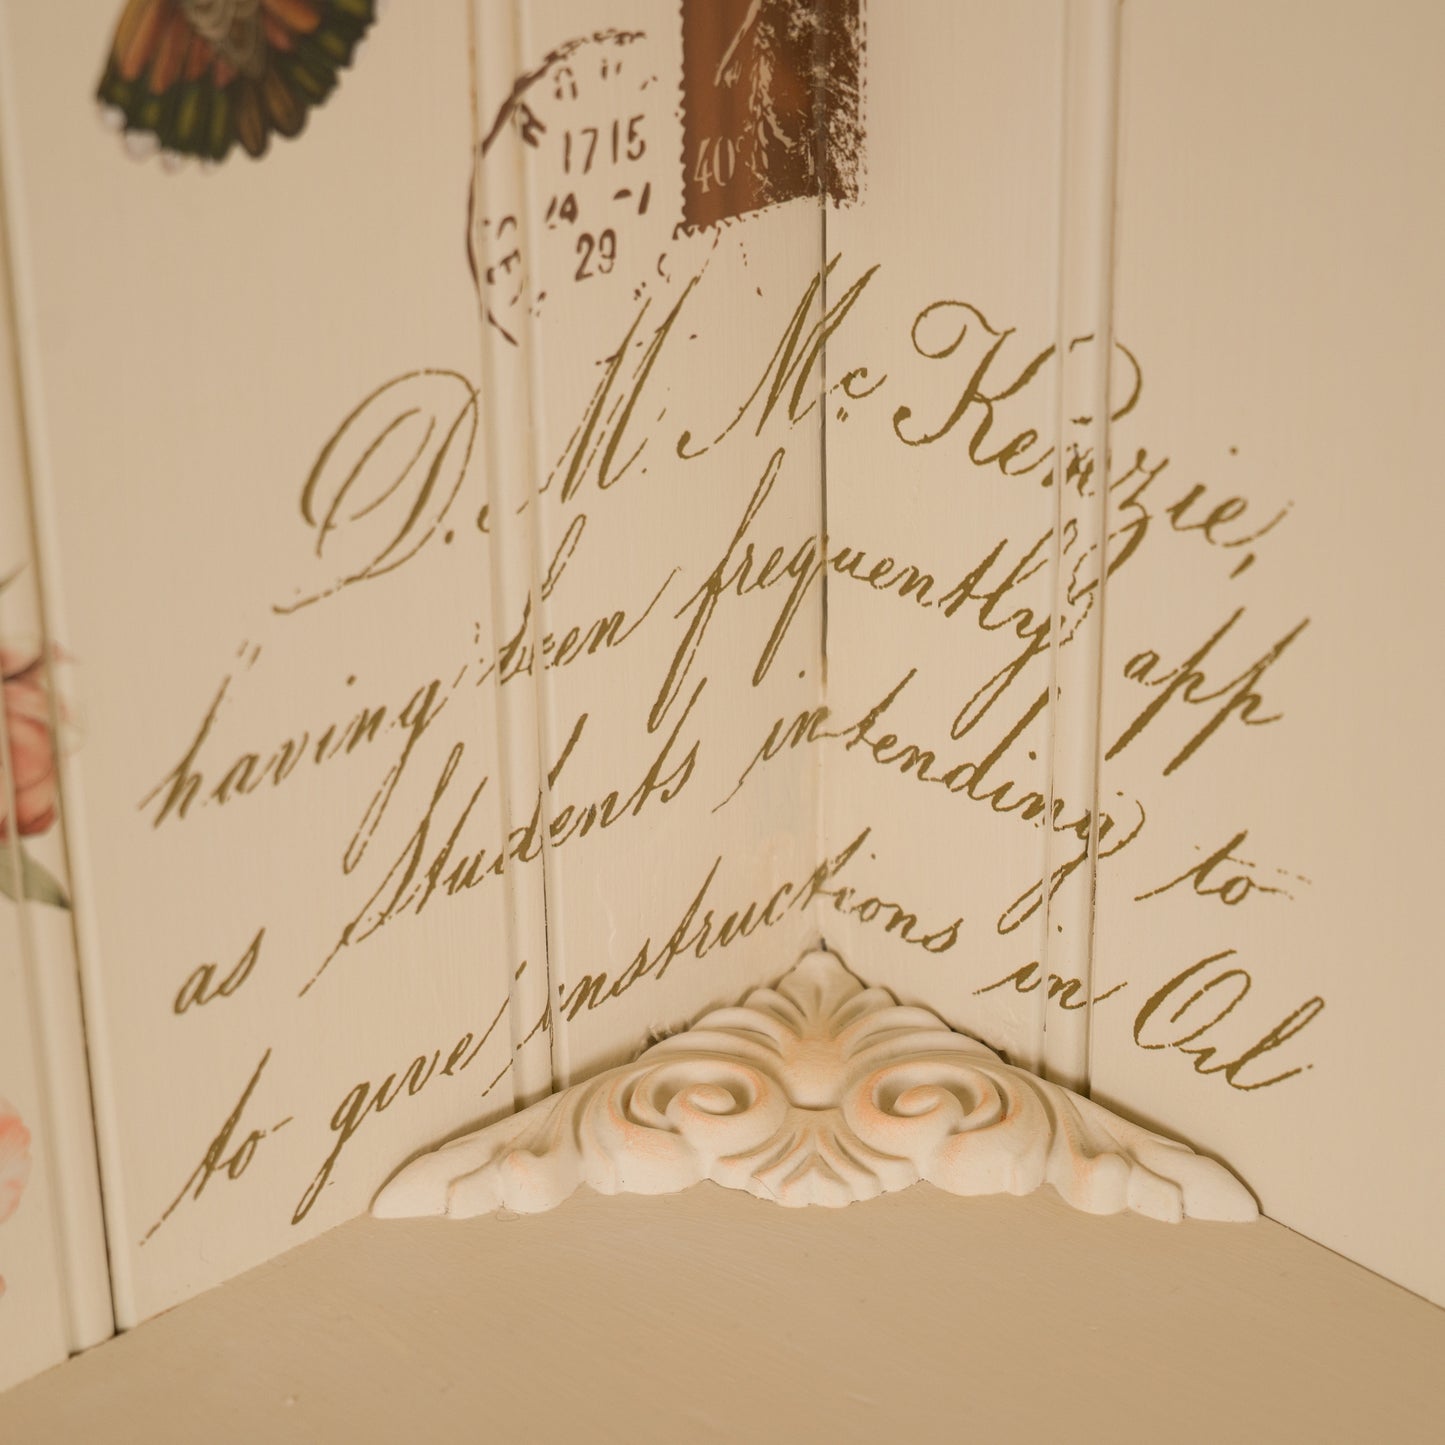 1715
40
14 -1
29
D. M. Mc Kenzie,
having been frequently app
as Students intending to
to give instructions in Oil